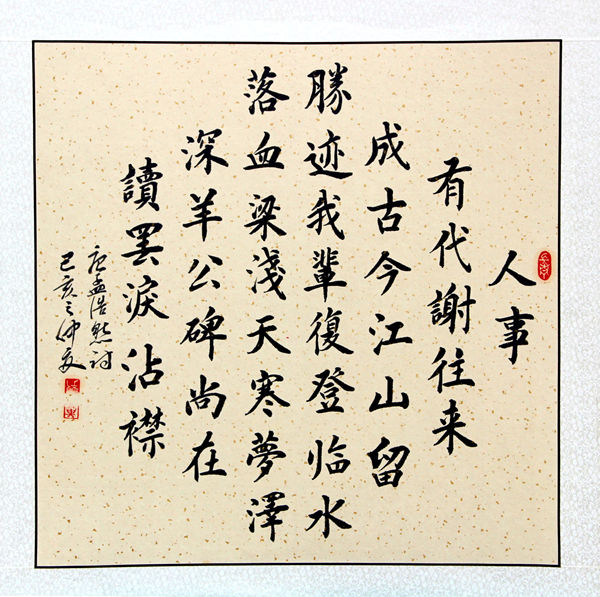 人事
有代謝往来
成古今江山留
勝迹我輩復登临水
落血梁淺天寒夢澤
深羊公碑尚在
讀罢淚沾襟
唐孟浩然詩
己亥之仲夏